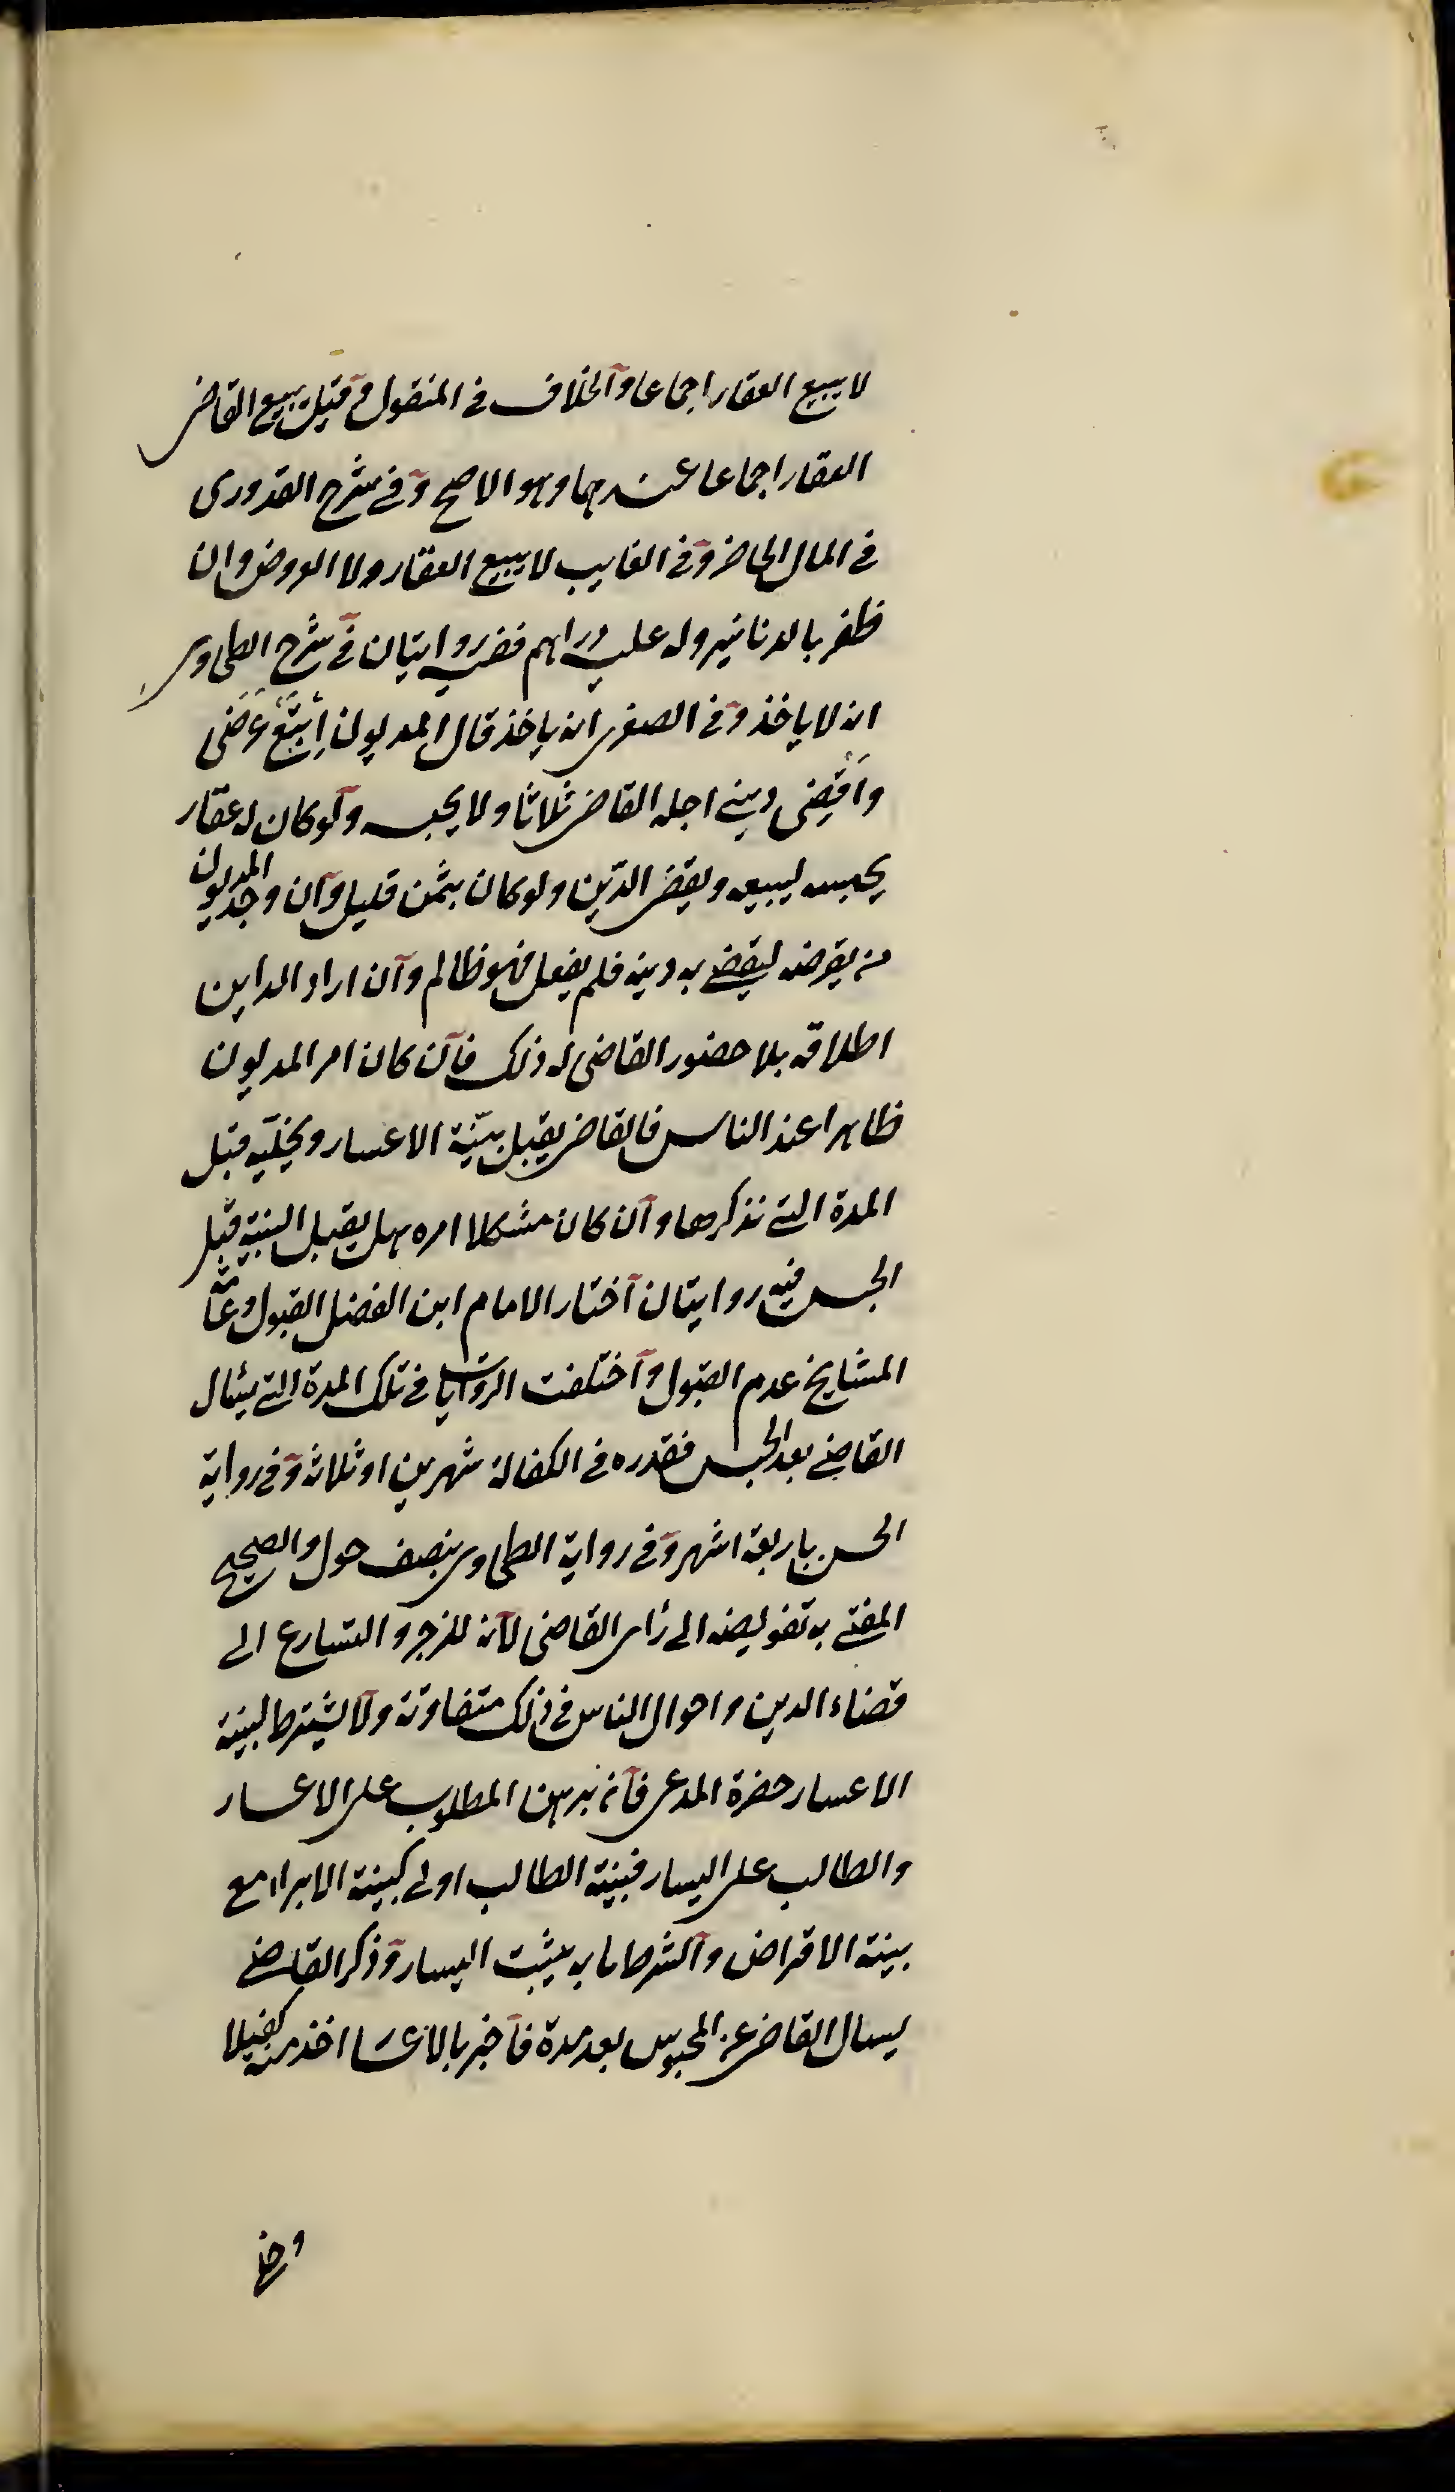 لا يبيع العقار اجماعا والخلاف في المنقول وقيل يبيع القاضى
العقار اجماعا عندهما وهو الاصح وفي شرح القدورى
في المال الحاضر وفي الغايب لا يبيع العقار ولا العروض وان
ظفر بالدنانير وله عليه دراهم ففيه روايتان في شرح الطحاوى
انه لا ياخذ وفي الصغرى انه ياخذ قال المديون اَبِيعُ عَرَضى
وَاَقْضِى دينى اجله القاضى ثلاثا ولا يحبسه ولو كان له عقار
يحبسه ليبيعه ويقضى الدَّين ولو كان بثمن قليل وان وجد المديون
من يقرضه ليقضى به دينه فلم يفعل فهو ظالم وان اراد الداين
اطلاقه بلا حضور القاضى له ذلك فان كان امر المديون
ظاهرا عند الناس فالقاضى يقبل بيّنة الاعسار ويخليّه قبل
المدة التى نذكرها وان كان مشكلا امره هل يقبل البينة قبل
الحبس فيه روايتان اختار الامام ابن الفضل القبول وعامّة
المشايخ عدم القبول واختلفت الروايات في تلك المدة التى يسئال
القاضى بعد الحبس فقدره في الكفالة شهرين او ثلاثة وفي رواية
الحسن باربعة اشهر وفي رواية الطحاوى بنصف حول والصحيح
المفتى به تفويضه الى رأى القاضى لانه للزجر والتسارع الى
قضاء الدين واحوال الناس في ذلك متفاوتة ولا يشترط لبينة
الاعسار حضرة المدعى فان برهن المطلوب على الاعسار
والطالب على اليسار فبينة الطالب اولى كبينة الابراء مع
بينة الاقراض والشرط ما به يثبت اليسار وذكر القاضى
يسال القاضى عن المحبوس بعد مدة فاخبر بالاعسار اخذ منه كفيلا
وخلى